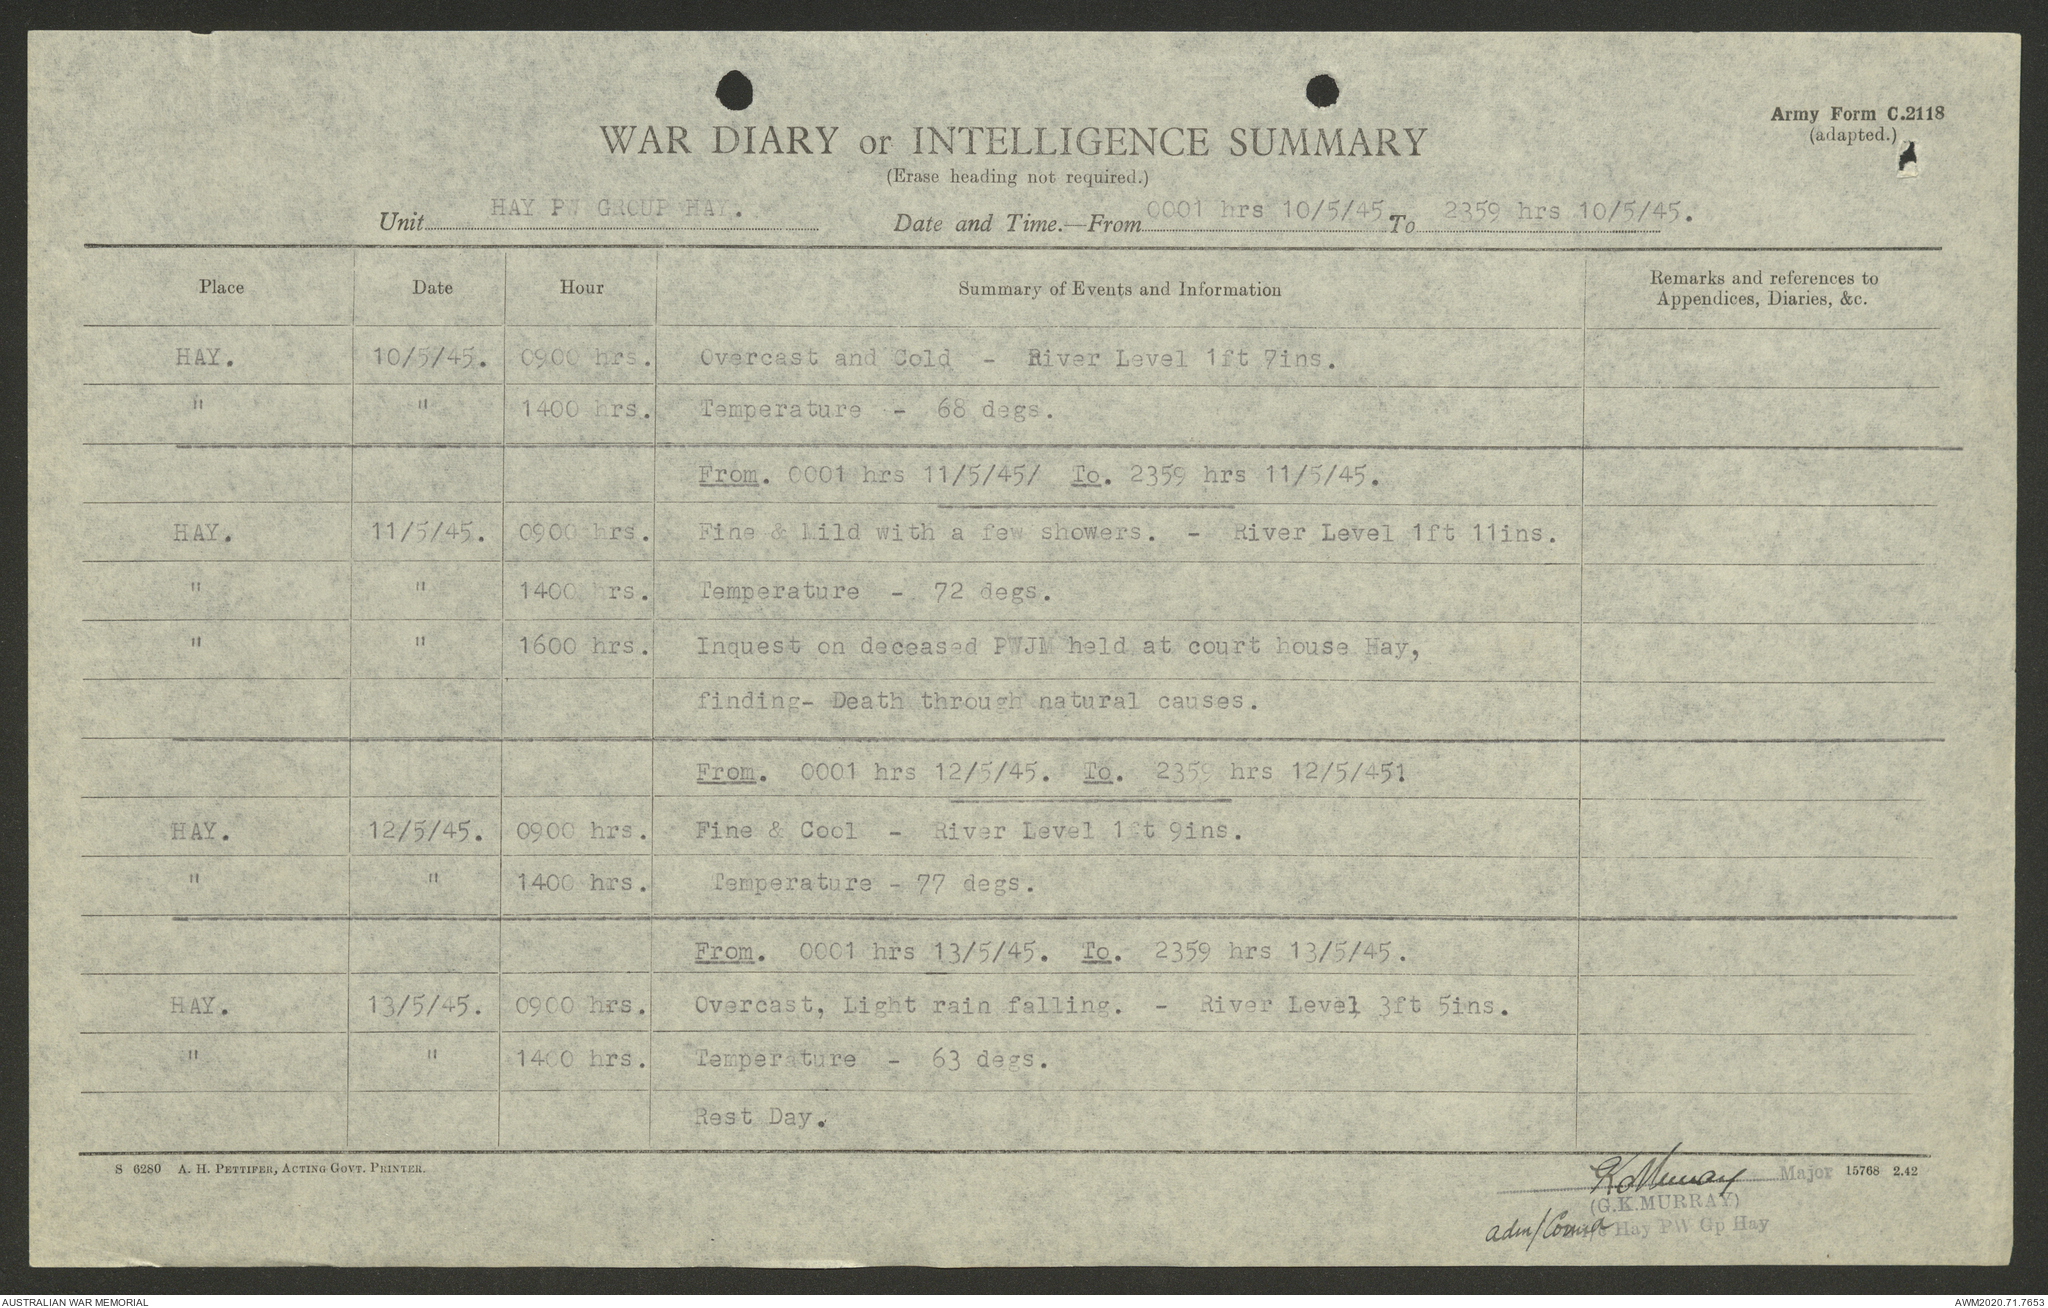 Army Form C.2118
(adapted.)
WAR DIARY or INTELLIGENCE SUMMARY
(Erase heading not required.)
Unit HAY PW GROUP HAY. Date and Time.—From 0001 hrs 10/5/45 To 2359 hrs 10/5/45.
Place Date Hour Summary of Events and Information Remarks and references to
Appendices, Diaries, &c.
HAY. 10/5/45. 0900 hrs. Overcast and Cold - River Level 1ft 7ins.
" " 1400 hrs. Temperature - 68 degs.
From. 0001 hrs 11/5/45/ To. 2359 hrs 11/5/45.
HAY. 11/5/45. 0900 hrs. Fine & Mild with a few showers. - River Level 1ft 11ins.
" " 1400 hrs. Temperature - 72 degs.
" " 1600 hrs. Inquest on deceased PWJM held at court house Hay,
finding- Death through natural causes.
From. 0001 hrs 12/5/45. To. 2359 hrs 12/5/45!
HAY. 12/5/45. 0900 hrs. Fine & Cool - River Level 1ft 9ins.
" " 1400 hrs. Temperature - 77 degs.
From. 0001 hrs 13/5/45. To. 2359 hrs 13/5/45.
HAY. 13/5/45. 0900 hrs. Overcast, Light rain falling. - River Level 3ft 5ins.
" " 1400 hrs. Temperature - 63 degs.
Rest Day.
S 6280 A. H. PETTIFER, ACTING GOVT. PRINTER.
GKMurray Major 15768 2.42
(G.K.MURRAY)
Adm/Comd Hay PW Gp Hay
AUSTRALIAN WAR MEMORIAL AWM2020.71.7653